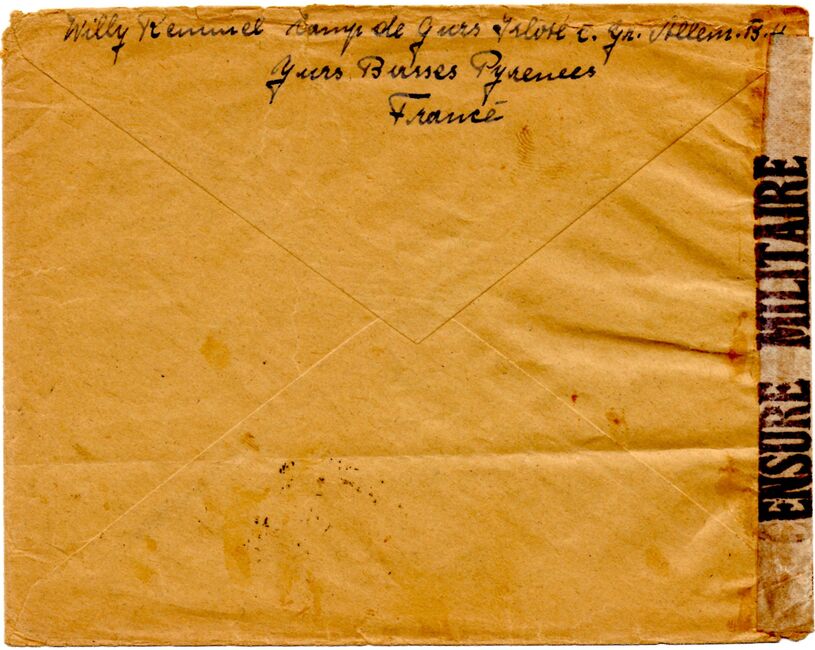 Willy Kemmel Camp de Gurs Ilôt c. Gr. Allem. B.
Gurs Basses Pyrenees
France
ENSURE MILITAIRE